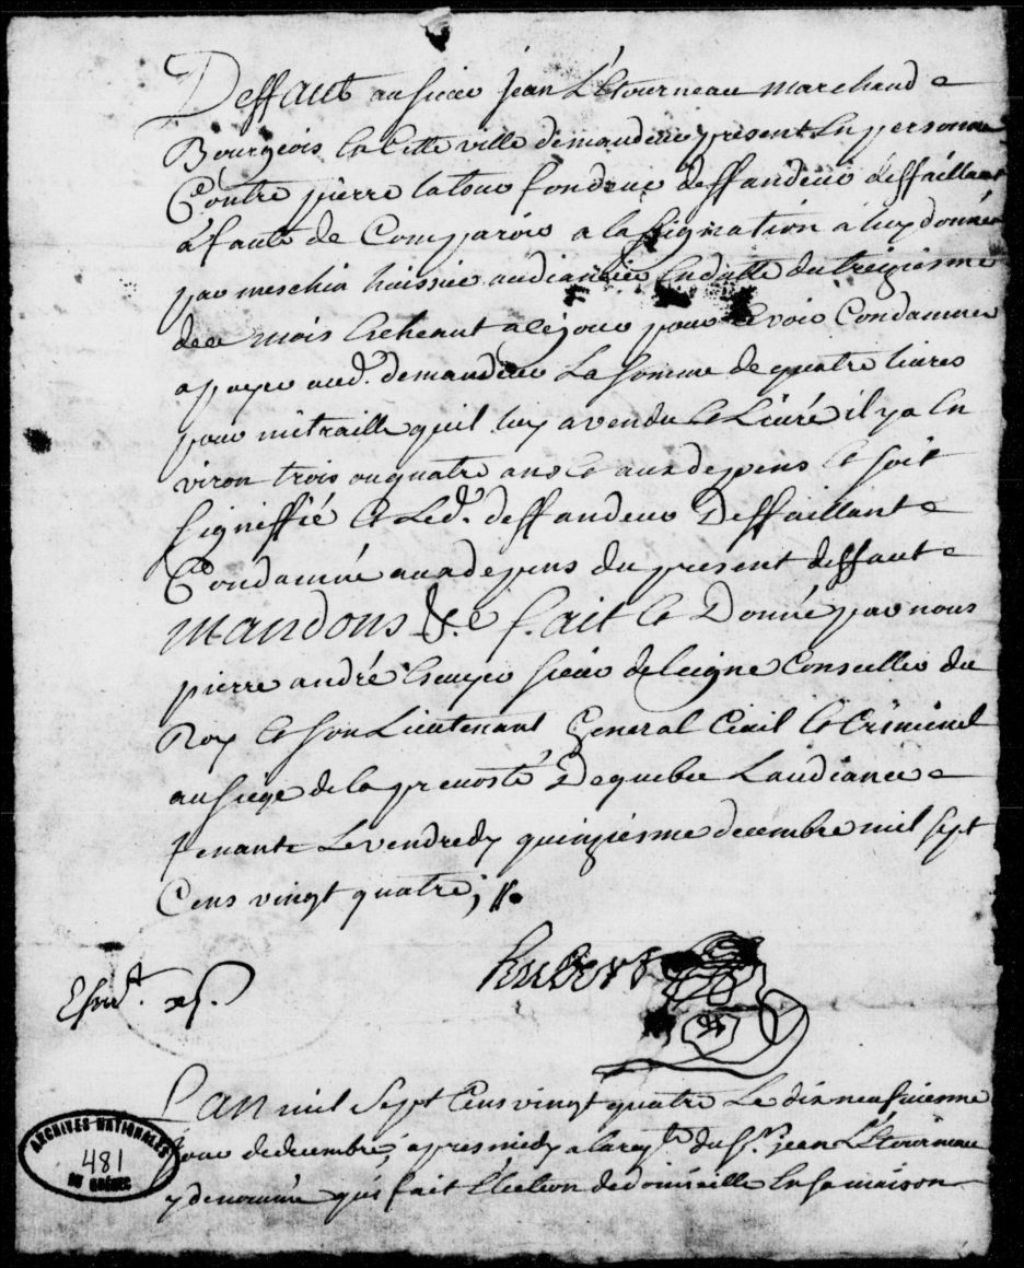 Deffaut au sieur jean L'Etourneau marchand
Bourgeois En Cette ville demandeur present En personne
Contre pierre latour fondeur deffandeur deffaillant
a faute de Comparoir a lassignation a luy donnée
par meschin huissier audiancier En datte du treiziesme
de ce mois Echeant a ce jour pour se voir Condamner
a payer aud. demandeur La somme de quatre livres
pour mitraille quil luy a vendu et Livré il y a En
viron trois ou quatre ans et aux depens Et soit
signeffié et Led. deffandeur Deffaillant
Condamné aux depens du present deffaut
Mandons &.c fait et Donné par nous
pierre andré Escuyer sieur de leigne Conseiller du
Roy et son Lieutenant General Civil et Criminel
au siege de la prevosté De quebec Laudiance
tenante Le vendredy quinziesme decembre mil sept
Cens vingt quatre ;
hubert
L'an mil Sept Cens vingt quatre Le dix neufviesme
jour de decembre, apres midy a la reqte du Sr. jean L'Etourneau
y denommé qui fait Election de domicille En sa maison
ARCHIVES NATIONALES
481
DU QUÉBEC